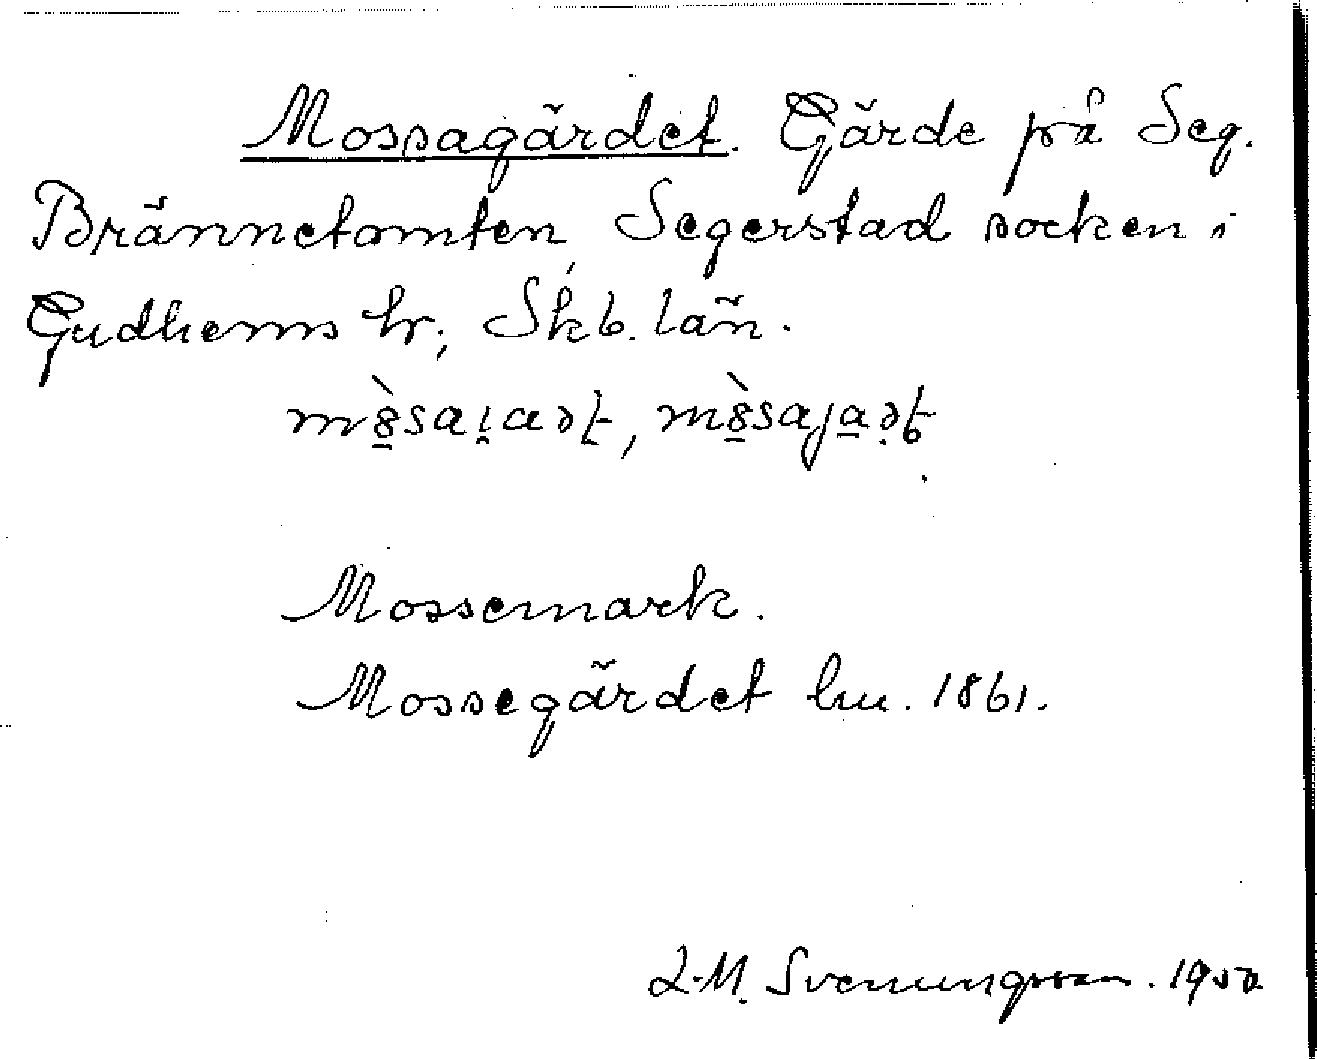 Mossagärdet. Gärde på Seg.
Brännetomten, Segerstad socken i
Gudhems hr; Skb. län.
mòsaɩ̯adt, mòsajadt
Mossemark.
Mossegärdet hu. 1861.
L-M. Svenungsson. 1950